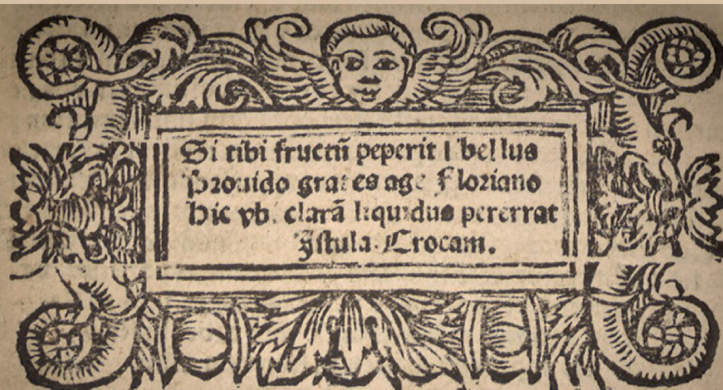 Si tibi fructū peperit libellus
Prouido grates age Floriano
Hic vbi clarā liquidus pererrat
Istula Crocam.